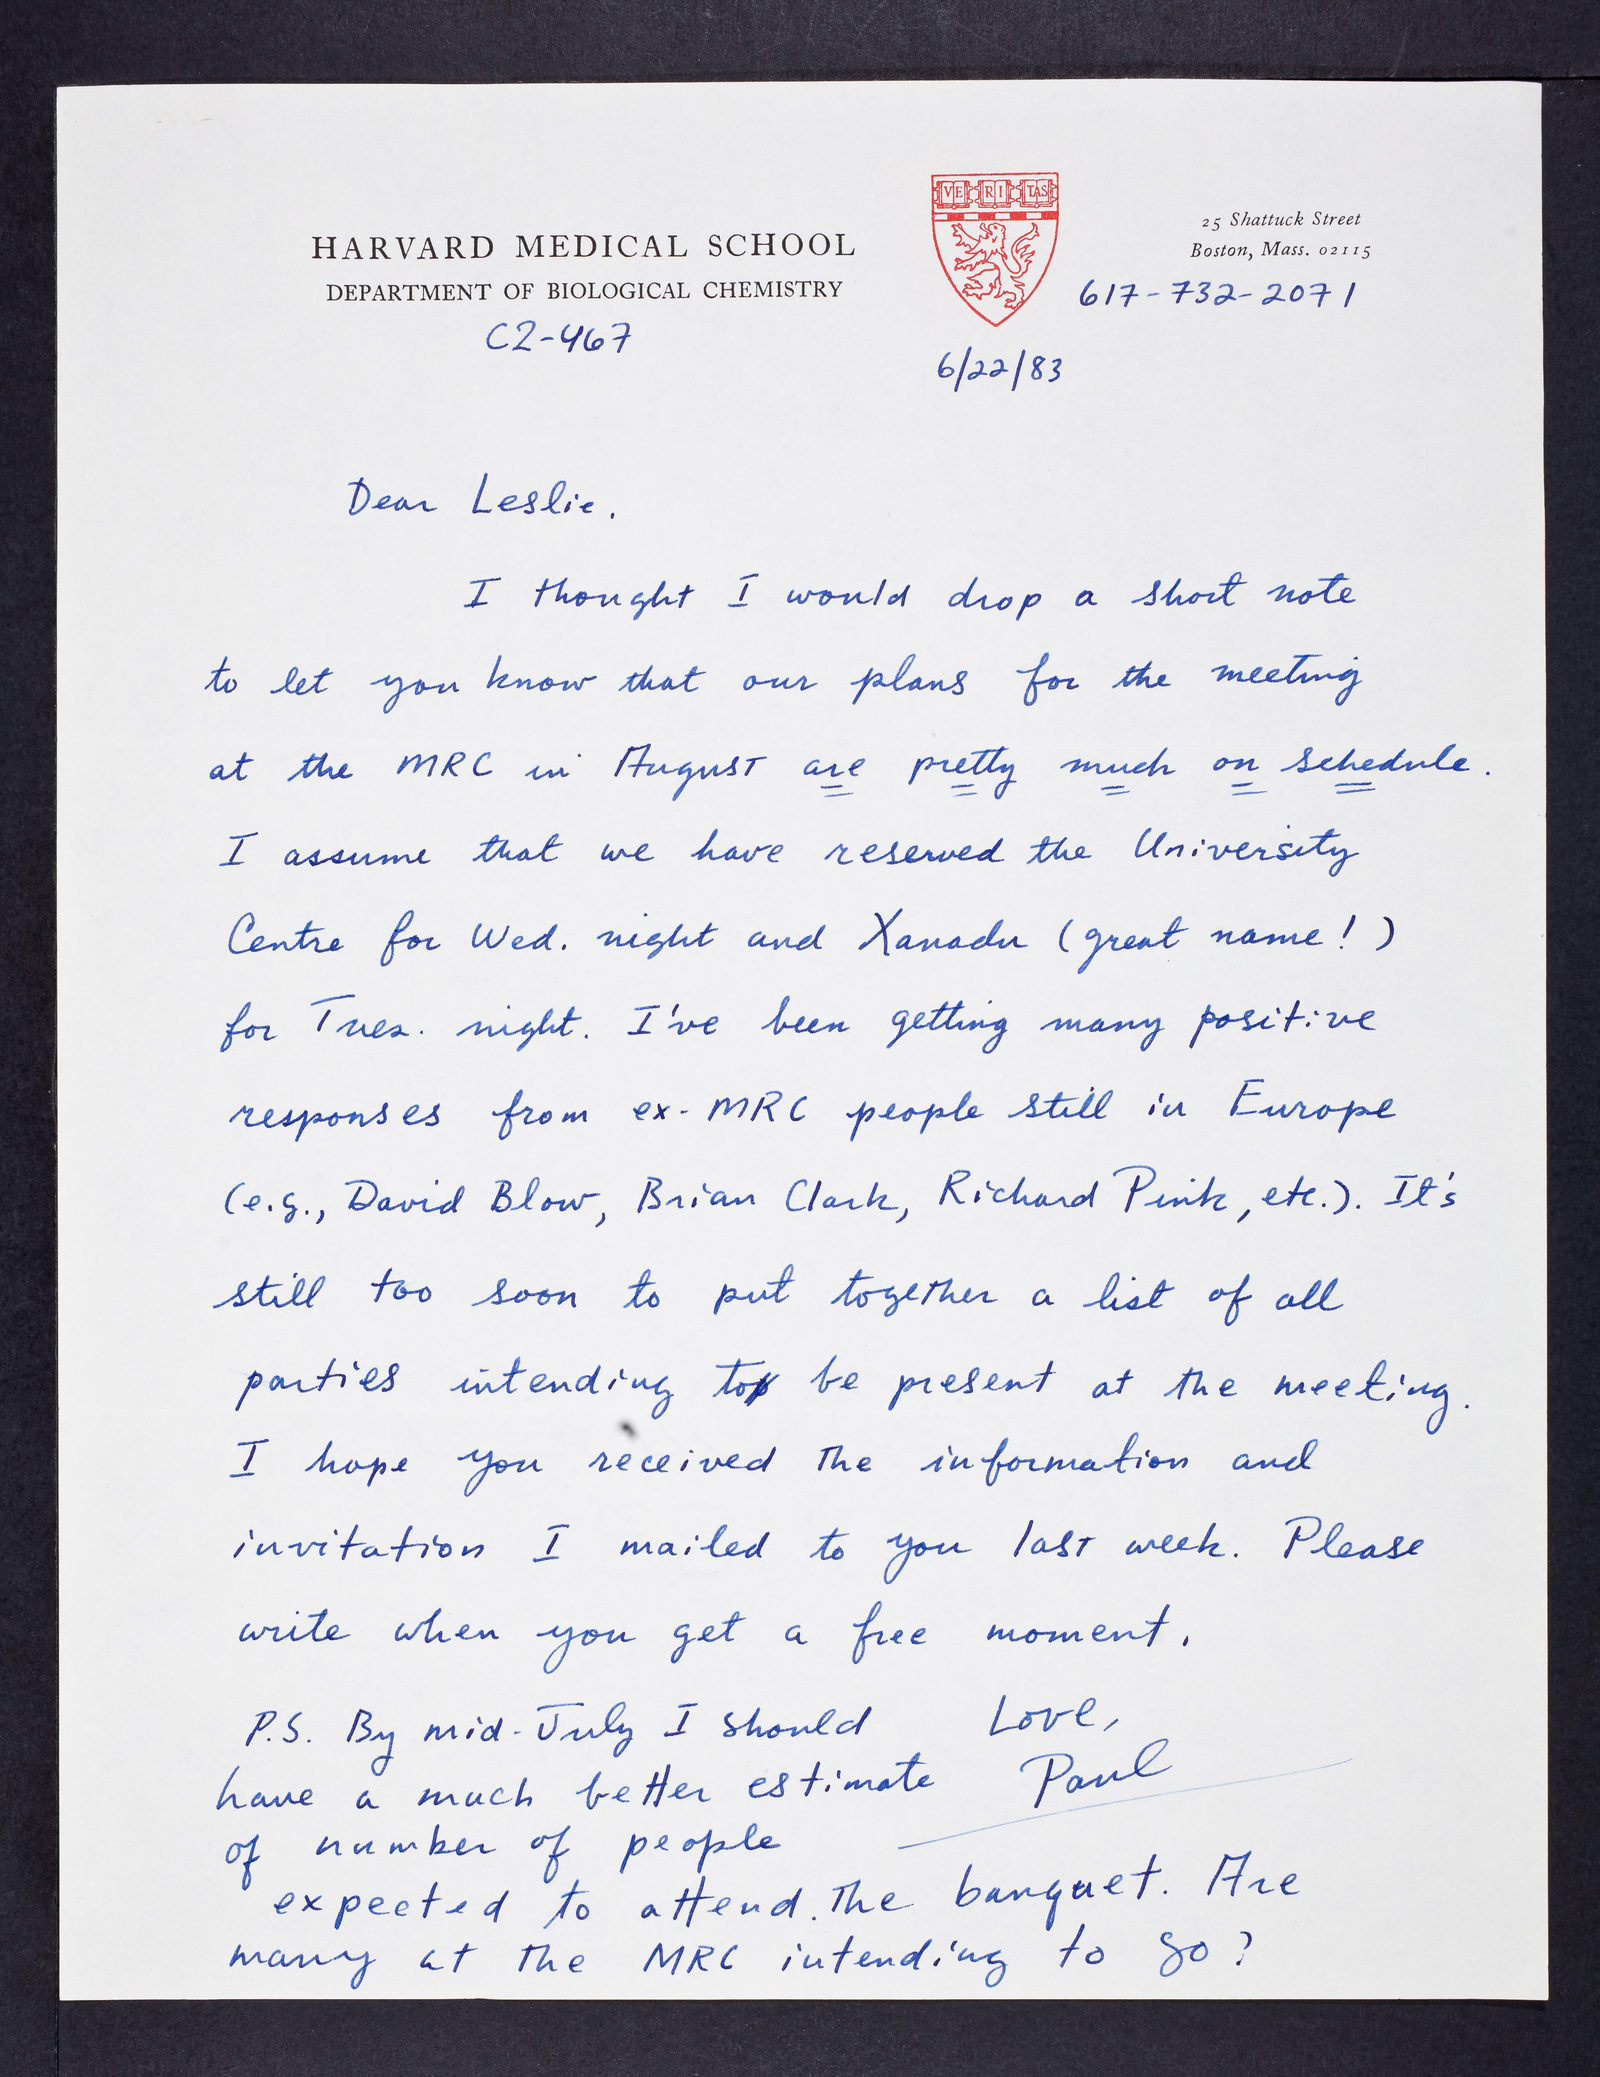 VE RI TAS
HARVARD MEDICAL SCHOOL
DEPARTMENT OF BIOLOGICAL CHEMISTRY
25 Shattuck Street
Boston, Mass. 02115
617-732-2071
C2-467
6/22/83
Dear Leslie.
I thought I would drop a short note
to let you know that our plans for the meeting
at the MRC in August are pretty much on schedule.
I assume that we have reserved the University
Centre for Wed. night and Xanadu (great name!)
for Tues. night. I've been getting many positive
responses from ex-MRC people still in Europe
(e.g., David Blow, Brian Clark, Richard Pink, etc.). It's
still too soon to put together a list of all
parties intending to be present at the meeting.
I hope you received the information and
invitation I mailed to you last week. Please
write when you get a free moment.
Love,
Paul
P.S. By mid-July I should
have a much better estimate
of number of people
expected to attend the banquet. Are
many at the MRC intending to go?